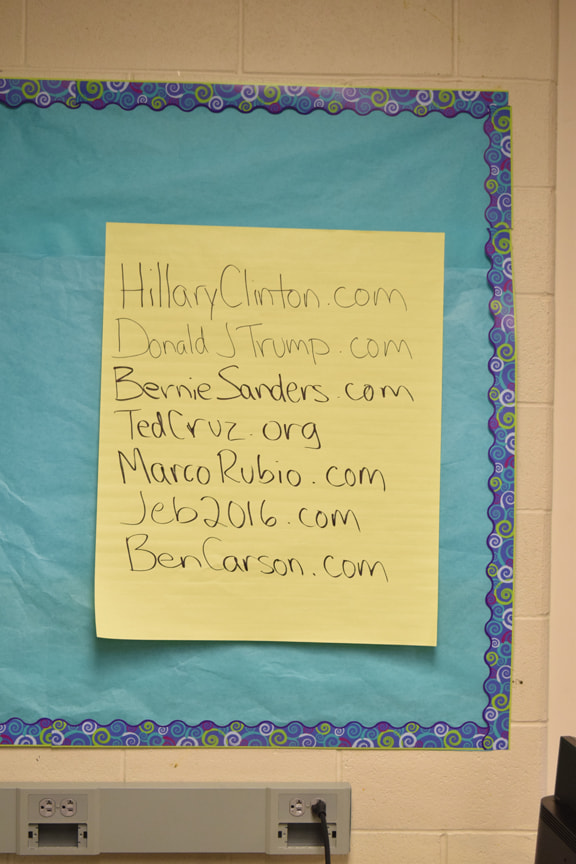 HillaryClinton.com
DonaldJTrump.com
BernieSanders.com
TedCruz.org
MarcoRubio.com
Jeb2016.com
BenCarson.com